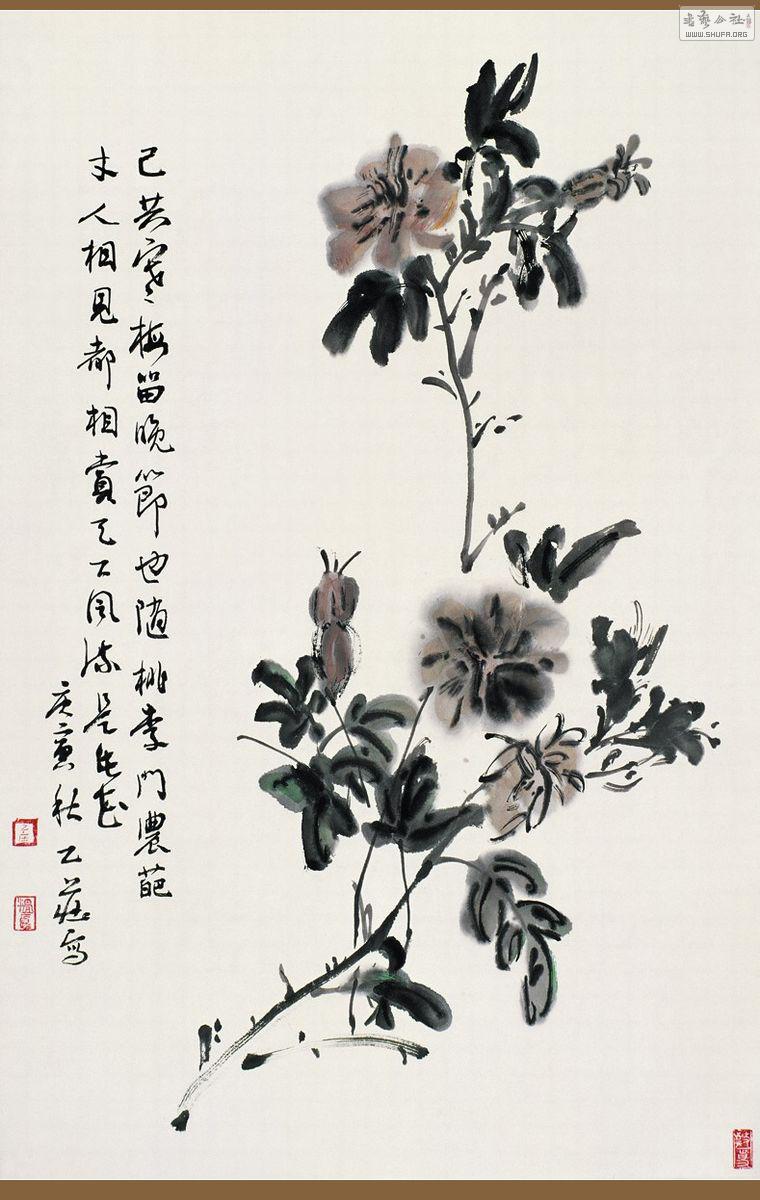 已共寒梅留晚節也隨桃李鬥濃葩
才人相見都相賞天下風流是此花
庚寅秋乙莊寫
書藝公社
WWW.SHUFA.ORG